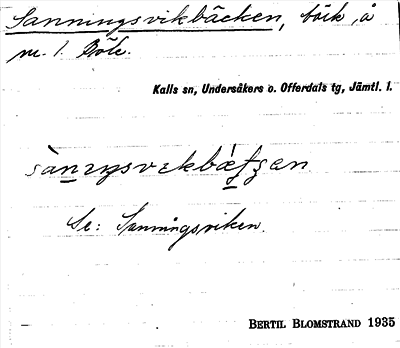 Sanningsvikbäcken, bäck, å
nr. 1. Böle.
Kalls sn, Undersåkers o. Offerdals tg, Jämtl. l.
Se: Sanningsviken.
BERTIL BLOMSTRAND 1935